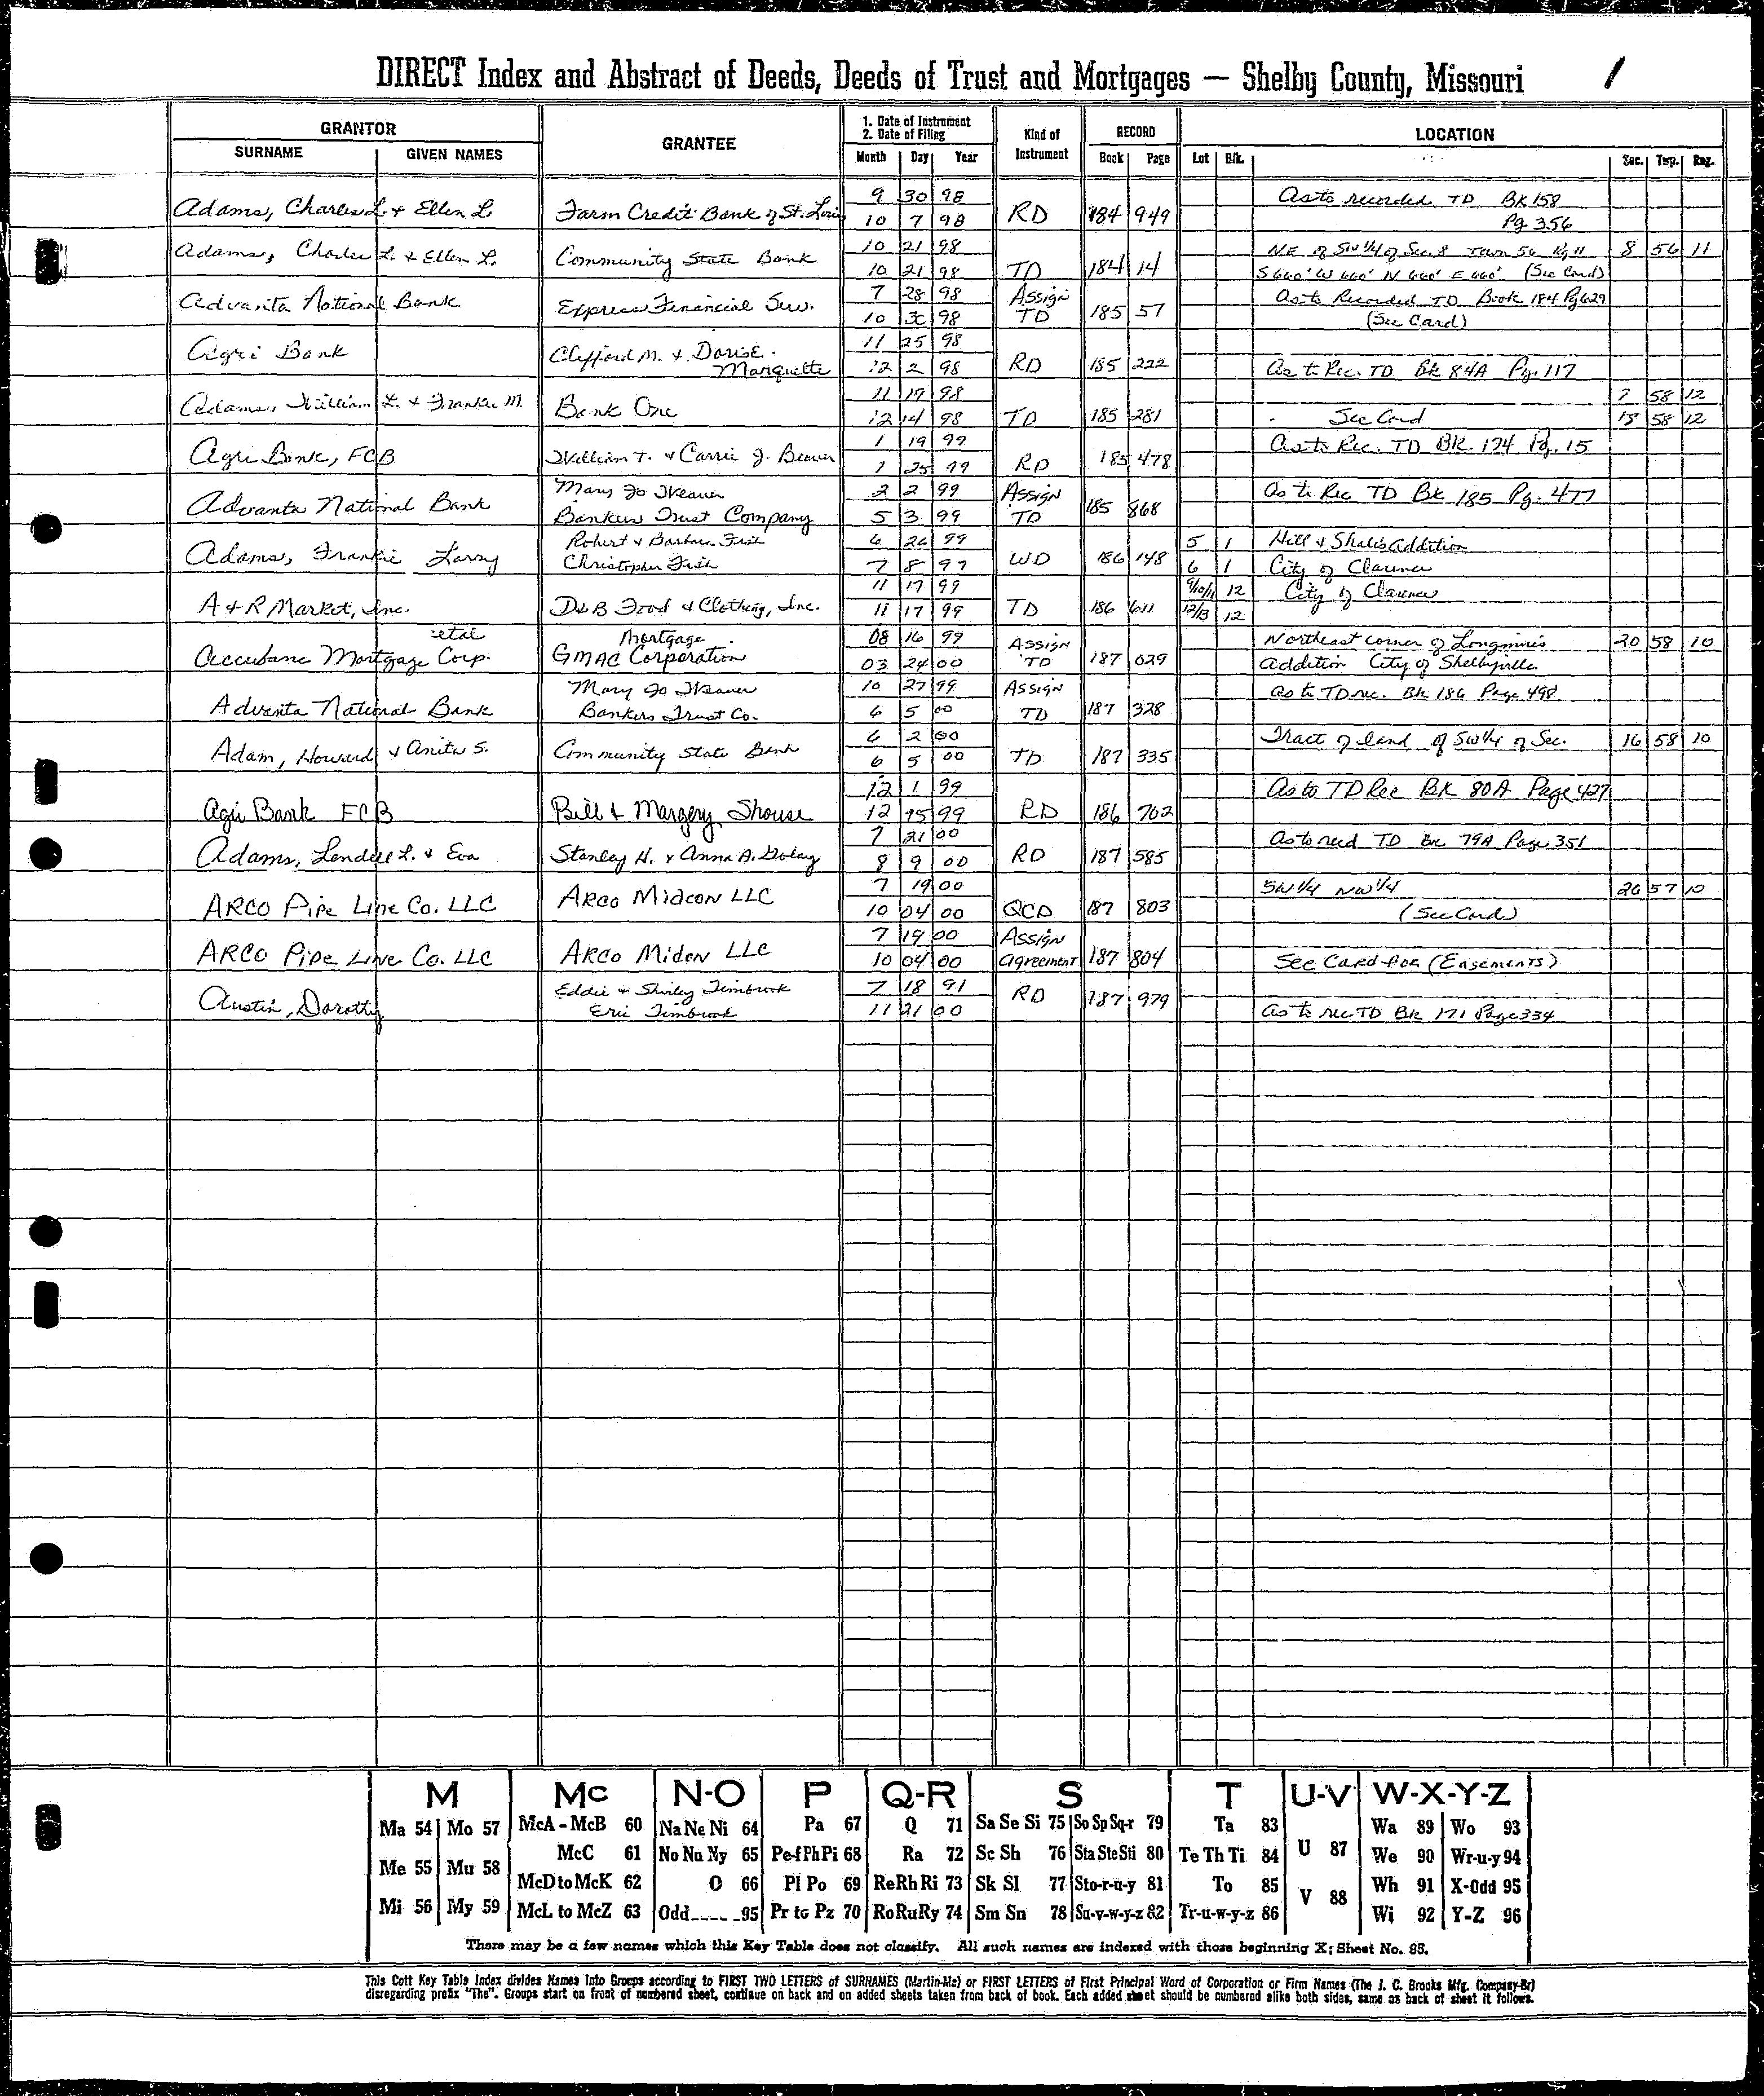 DIRECT Index and Abstract of Deeds, Deeds of Trust and Mortgages — Shelby County, Missouri 1
GRANTOR GRANTEE 1. Date of Instrument 2. Date of Filing Kind of Instrument RECORD LOCATION
SURNAME GIVEN NAMES Month Day Year Book Page Lot Blk. Sec. Twp. Rng.
9 30 98 As to recorded TD BK 158
Adams, Charles L. + Ellen L. Farm Credit Bank of St. Louis 10 7 98 RD 184 949 Pg 356
10 21 98 NE of SW 1/4 of Sec. 8 Town 56 Rg 11 8 56 11
Adams, Charles L. + Ellen L. Community State Bank 10 21 98 TD 184 14 S 660' W 660' N 660' E 660' (See Card)
7 28 98 Assign As to Recorded TD Book 184 Pg 629
Advanta National Bank Express Financial Serv. 10 30 98 TD 185 57 (See Card)
Agri Bank Clifford M. + Doris E. 11 25 98
Marquette 12 2 98 RD 185 222 As to Rec. TD Bk 84A Pg. 117
11 19 98 7 58 12
Adams, William L. + Frankie M. Bank One 12 14 98 TD 185 281 See Card 18 58 12
1 19 99 As to Rec. TD BK. 174 Pg. 15
Agri Bank, FCB William T. + Carrie J. Beaver 1 25 99 RD 185 478
Mary Jo Weaver 2 2 99 Assign As to Rec TD Bk 185 Pg. 477
Advanta National Bank Bankers Trust Company 5 3 99 TD 185 868
Robert + Barbara Fish 6 26 99 5 1 Hill + Shale's Addition
Adams, Frankie Larry Christopher Fish 7 8 99 WD 186 148 6 1 City of Clarence
11 17 99 9/10/11 12 City of Clarence
A + R Market, Inc. D+B Food + Clothing, Inc. 11 17 99 TD 186 611 12/13 12
etal Mortgage 08 16 99 Assign Northeast corner of Longmire's 20 58 10
Accubanc Mortgage Corp. GMAC Corporation 03 24 00 TD 187 029 addition City of Shelbyville
Mary Jo Weaver 10 27 99 Assign As to TD rec. Bk 186 Page 498
Advanta National Bank Bankers Trust Co. 6 5 00 TD 187 328
6 2 00 Tract of land of SW 1/4 of Sec. 16 58 10
Adam, Howard + Anita S. Community State Bank 6 5 00 TD 187 335
12 1 99 As to TD Rec Bk 80A Page 427
Agri Bank FCB Bill + Margery Shouse 12 15 99 RD 186 702
7 21 00 As to recd TD Bk 79A Page 351
Adams, Lendell L. + Eva Stanley H. + Anna A. 8 9 00 RD 187 585
7 19 00 SW 1/4 NW 1/4 26 57 10
ARCO Pipe Line Co. LLC ARCO Midcon LLC 10 04 00 QCD 187 803 (See Card)
7 19 00 Assign
ARCO Pipe Line Co. LLC ARCO Midcn LLC 10 04 00 agreement 187 804 See Card for (Easements)
Eddie + Shirley Timbrook 7 18 91
Austin, Dorothy Eric Timbrook 11 21 00 RD 187 979 As to rec TD Bk 171 Page 334
M Mc N-O P Q-R S T U-V W-X-Y-Z
Ma 54 Mo 57 McA - McB 60 Na Ne Ni 64 Pa 67 Q 71 Sa Se Si 75 So Sp Sq-r 79 Ta 83 U 87 Wa 89 Wo 93
Me 55 Mu 58 McC 61 No Nu Ny 65 Pe-f Ph Pi 68 Ra 72 Sc Sh 76 Sta Ste Sti 80 Te Th Ti 84 We 90 Wr-u-y 94
McD to McK 62 O 66 Pl Po 69 Re Rh Ri 73 Sk Sl 77 Sto-r-u-y 81 To 85 V 88 Wh 91 X-Odd 95
Mi 56 My 59 McL to McZ 63 Odd 95 Pr to Pz 70 Ro Ru Ry 74 Sm Sn 78 Su-v-w-y-z 82 Tr-u-w-y-z 86 Wi 92 Y-Z 96
There may be a few names which this Key Table does not classify. All such names are indexed with those beginning X; Sheet No. 95.
This Cott Key Table Index divides Names Into Groups according to FIRST TWO LETTERS of SURNAMES (Martin-Ma) or FIRST LETTERS of First Principal Word of Corporation or Firm Names (The J. C. Brooks Mfg. Company-Br)
disregarding prefix "The". Groups start on front of numbered sheet, continue on back and on added sheets taken from back of book. Each added sheet should be numbered alike both sides, same as back of sheet it follows.